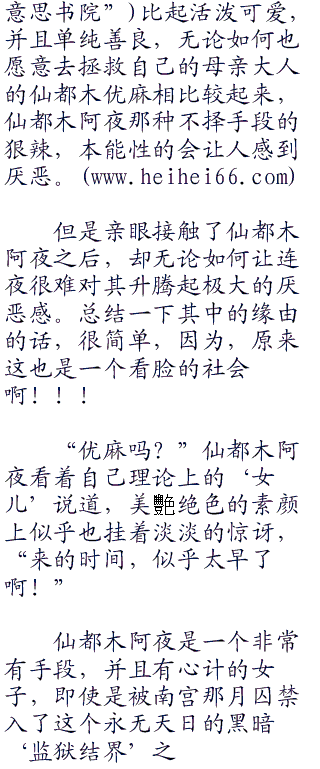 意思书院”)比起活泼可爱，
并且单纯善良，无论如何也
愿意去拯救自己的母亲大人
的仙都木优麻相比较起来，
仙都木阿夜那种不择手段的
狠辣，本能性的会让人感到
厌恶。(www.heihei66.com)
但是亲眼接触了仙都木
阿夜之后，却无论如何让连
夜很难对其升腾起极大的厌
恶感。总结一下其中的缘由
的话，很简单，因为，原来
这也是一个看脸的社会
啊！！！
“优麻吗？”仙都木阿
夜看着自己理论上的‘女
儿’说道，美艷绝色的素颜
上似乎也挂着淡淡的惊讶，
“来的时间，似乎太早了
啊！”
仙都木阿夜是一个非常
有手段，并且有心计的女
子，即使是被南宫那月囚禁
入了这个永无天日的黑暗
‘监狱结界’之